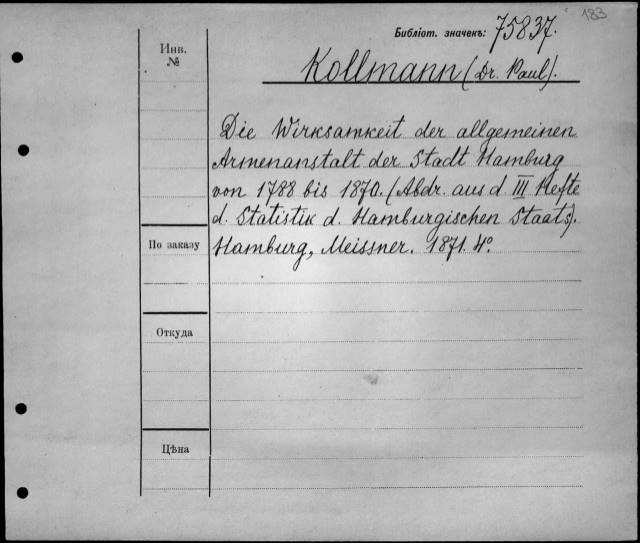 183
Библіот. значекъ: 75837.
Инв.
№
Kollmann (Dr. Paul).
Die Wirksamkeit der allgemeinen
Armenanstalt der Stadt Hamburg
von 1788 bis 1870. (Abdr. aus d. III Hefte
d. Statistik d. Hamburgischen Staats).
По заказу
Hamburg, Meissner. 1871. 4°.
Откуда
Цѣна